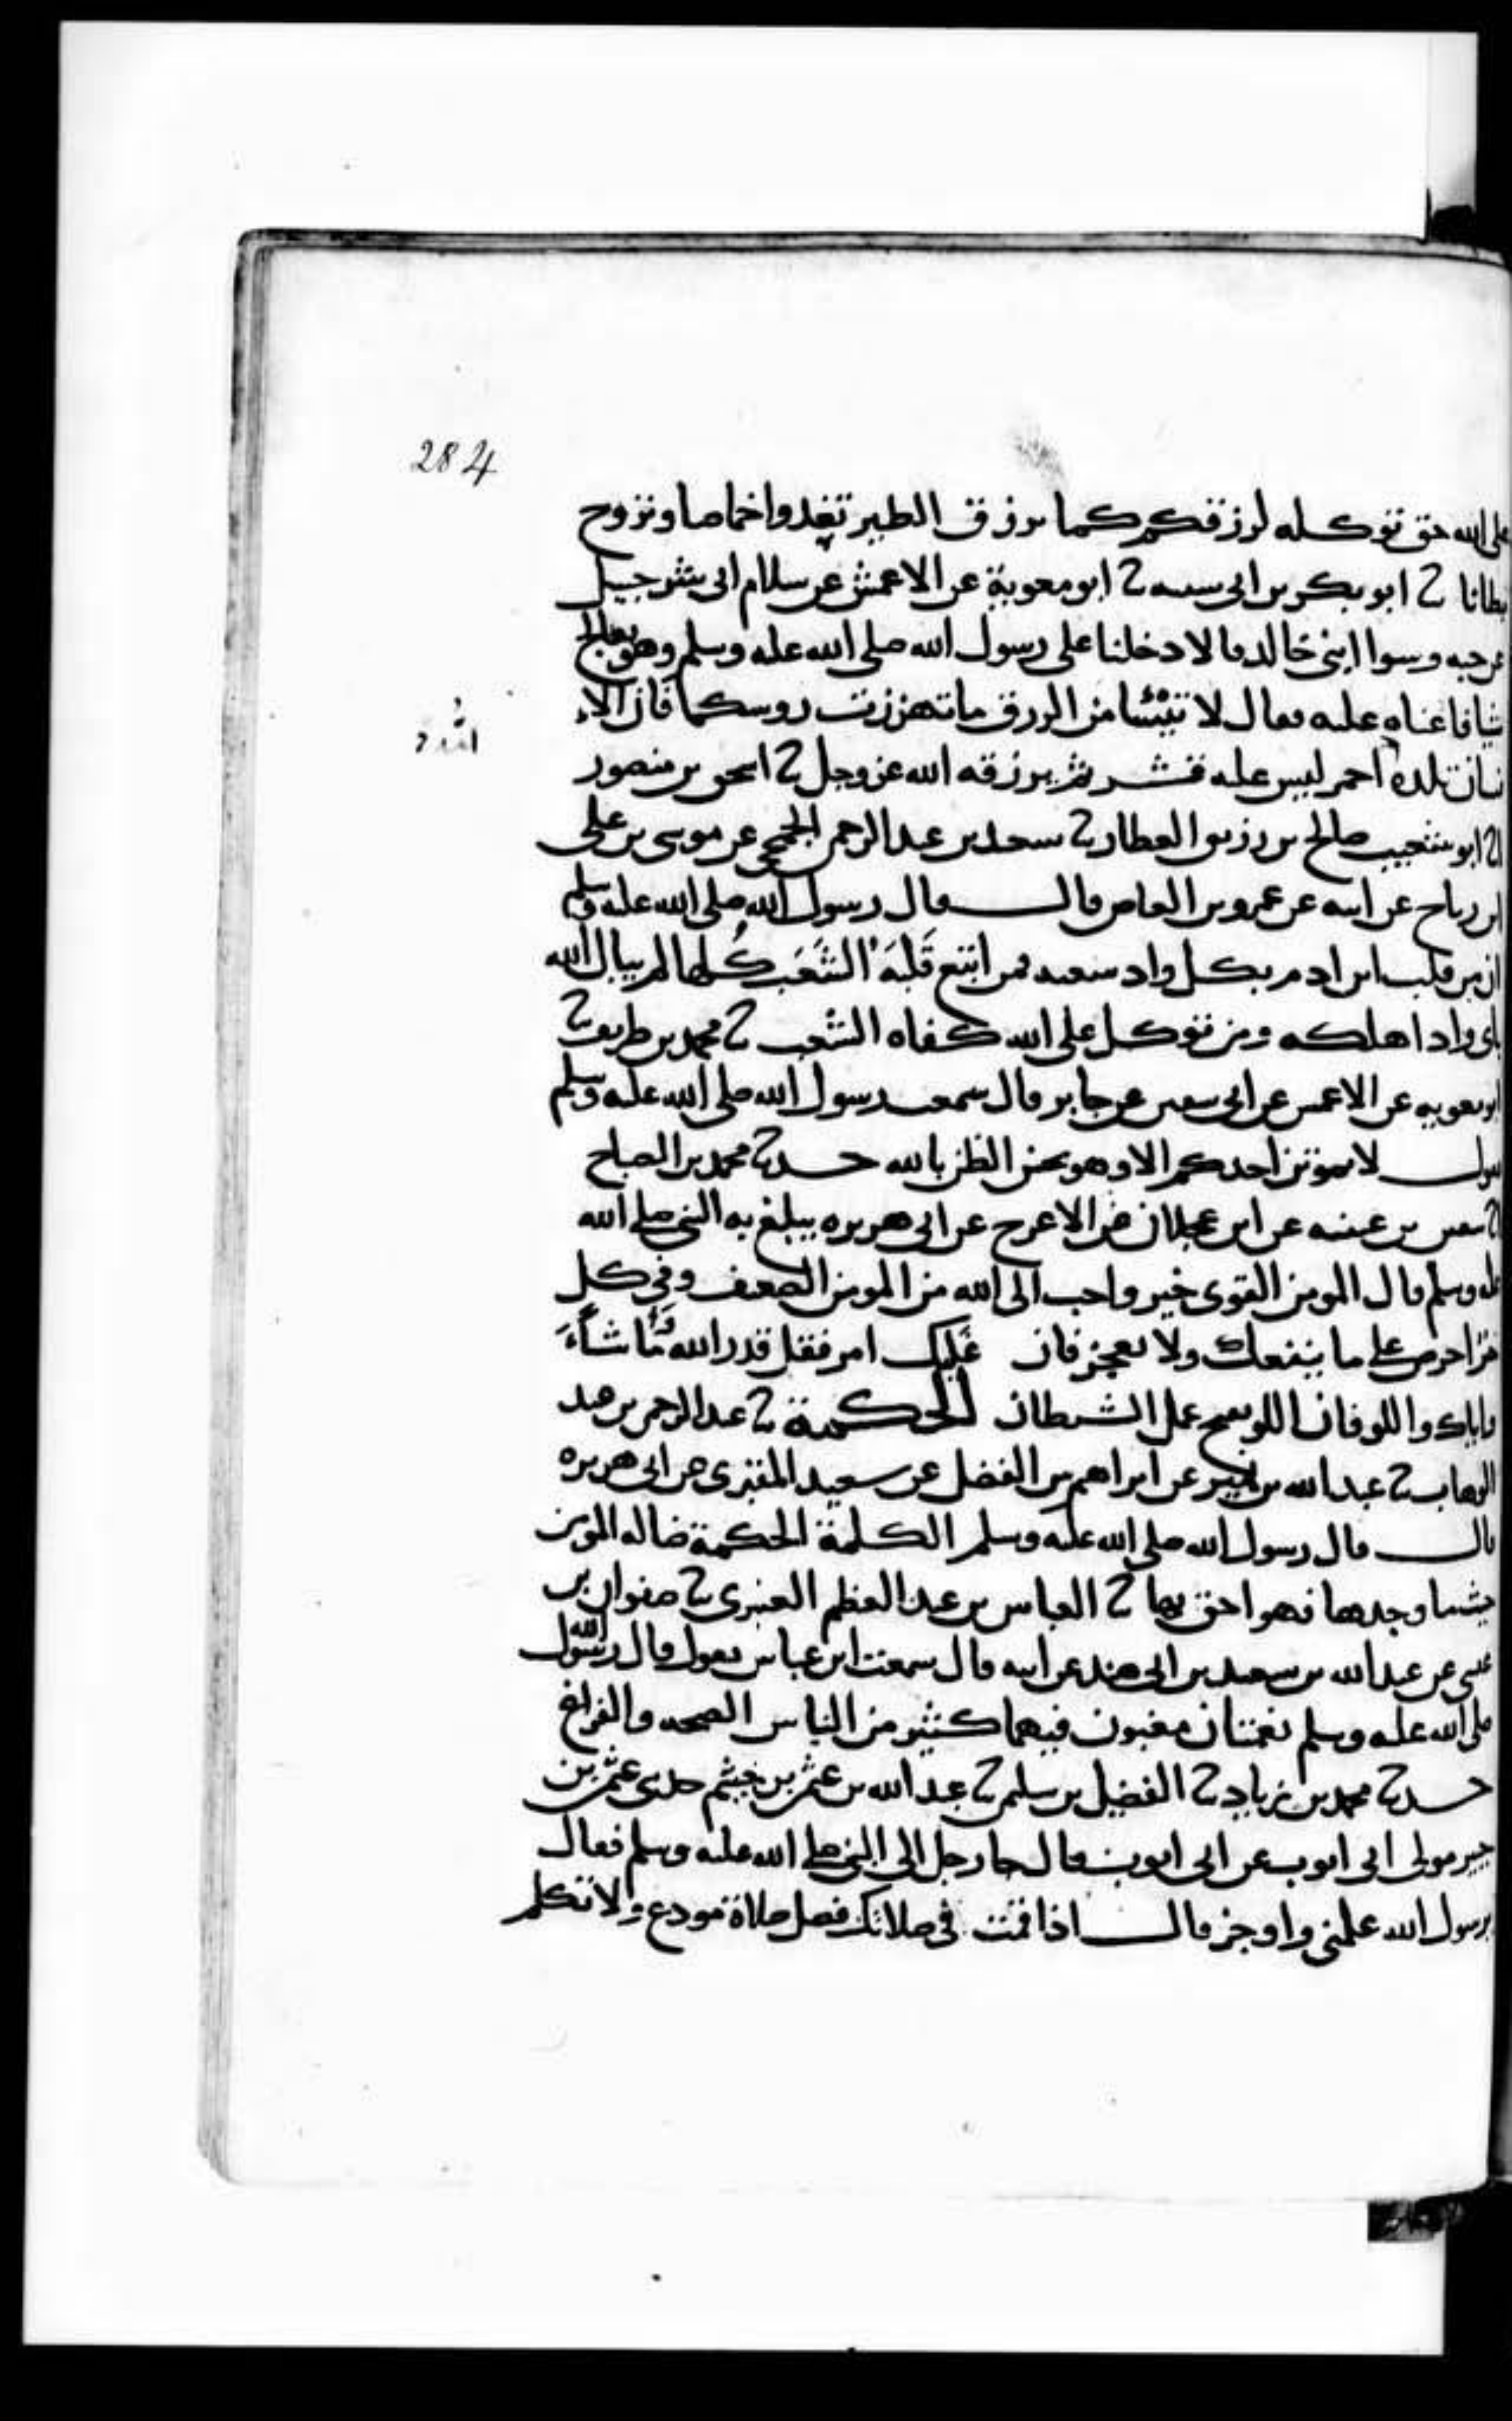 284
على الله حق توكله لرزقكم كما يرزق الطير تغدوا خماصا وتروح
بطانا ثنا ابو بكر بن ابي شيبه ثنا ابو معوية عن الاعمش عن سلام ابي شرحبيل
عن حبه وسوا ابني خالد قالا دخلنا على رسول الله صلى الله عليه وسلم وهو يعالج
شيا فاعناه عليه فقال لا تيئسا من الرزق ما تهززت روسكما فان الا
نسان تلده احمر ليس عليه قشر ثم يرزقه الله عز وجل ثنا اسحق بن منصور
امه
ثنا ابو شعيب صالح بن رزيق العطار ثنا سعيد بن عبد الرحمن الجمحي عن موسى بن على
بن رباح عن ابيه عن عمرو بن العاص قال قال رسول الله صلى الله عليه وسلم
ان من قلب ابن ادم بكل واد شعبه فمن اتبع قلبه الشعب كلها لم يبال الله
باى واد اهلكه ومن توكل على الله كفاه الشعب ثنا محمد بن طريف ثنا
ابو معويه عن الاعمش عن ابي سفين عن جابر قال سمعت رسول الله صلى الله عليه وسلم
يقول لا يموتن احدكم الا وهو يحسن الظن بالله حدثنا محمد بن الصباح
ثنا سفين بن عيينه عن ابن عجلان عن الاعرج عن ابي هريره يبلغ به النبي صلى الله
عليه وسلم قال المومن القوى خير واحب الى الله من المومن الضعيف وفي كل
خير احرص على ما ينفعك ولا تعجز فان غلبك امر فقل قدر الله مَا شَاءَ
واياك واللو فان اللو تفتح عمل الشيطان الحكمة ثنا عبد الرحمن بن عبد
الوهاب ثنا عبد الله بن نمير عن ابراهيم بن الفضل عن سعيد المقبرى عن ابي هريره
قال قال رسول الله صلى الله عليه وسلم الكلمة الحكمة ضاله المومن
حيثما وجدها فهو احق بها ثنا العباس بن عبد العظيم العنبرى ثنا صفوان بن
عيسى عن عبد الله بن سعيد بن ابي هند عن ابيه قال سمعت ابن عباس يقول قال رسول الله
صلى الله عليه وسلم نعمتان مغبون فيهما كثير من الناس الصحه والفراغ
حدثنا محمد بن زياد ثنا الفضيل بن سليمن ثنا عبد الله بن عثمن بن خثيم حدثنى عثمن بن
جبير مولى ابي ايوب عن ابي ايوب قال جا رجل الى النبي صلى الله عليه وسلم فقال
يرسول الله علمني واوجز قال اذا قمت في صلاتك فصل صلاة مودع ولا تكلم